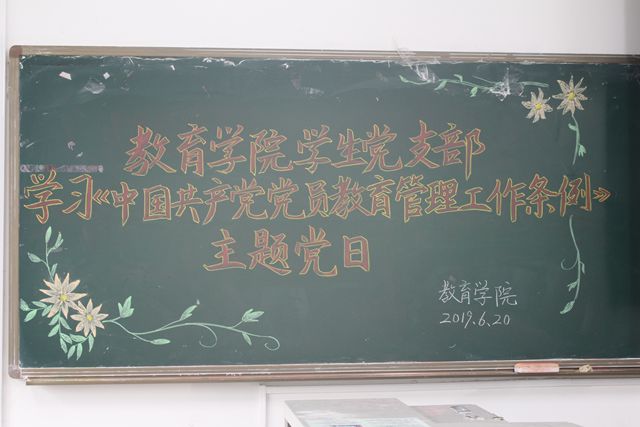 教育学院学生党支部
学习《中国共产党党员教育管理工作条例》
主题党日
教育学院
2019.6.20